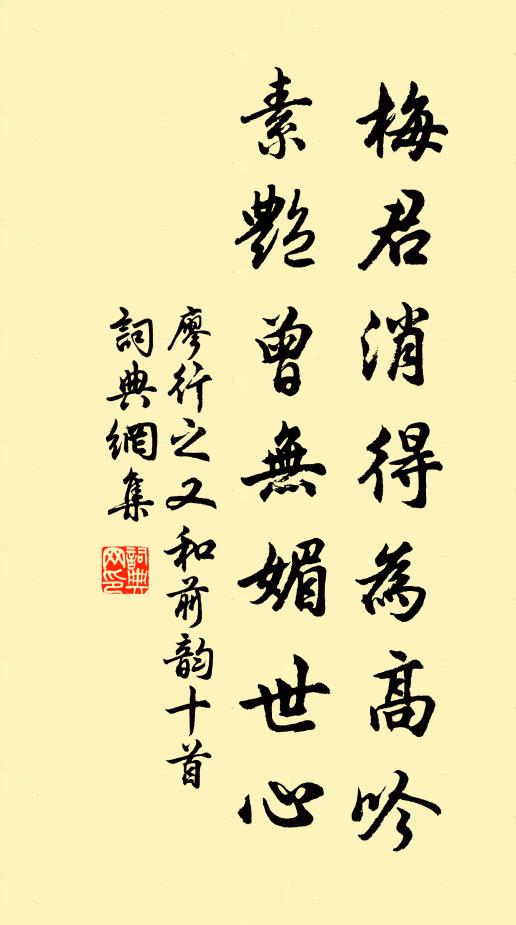 梅君消得為高吟
素艷曾無媚世心
廖行之又和前韵十首
詞典網集
詞典网印